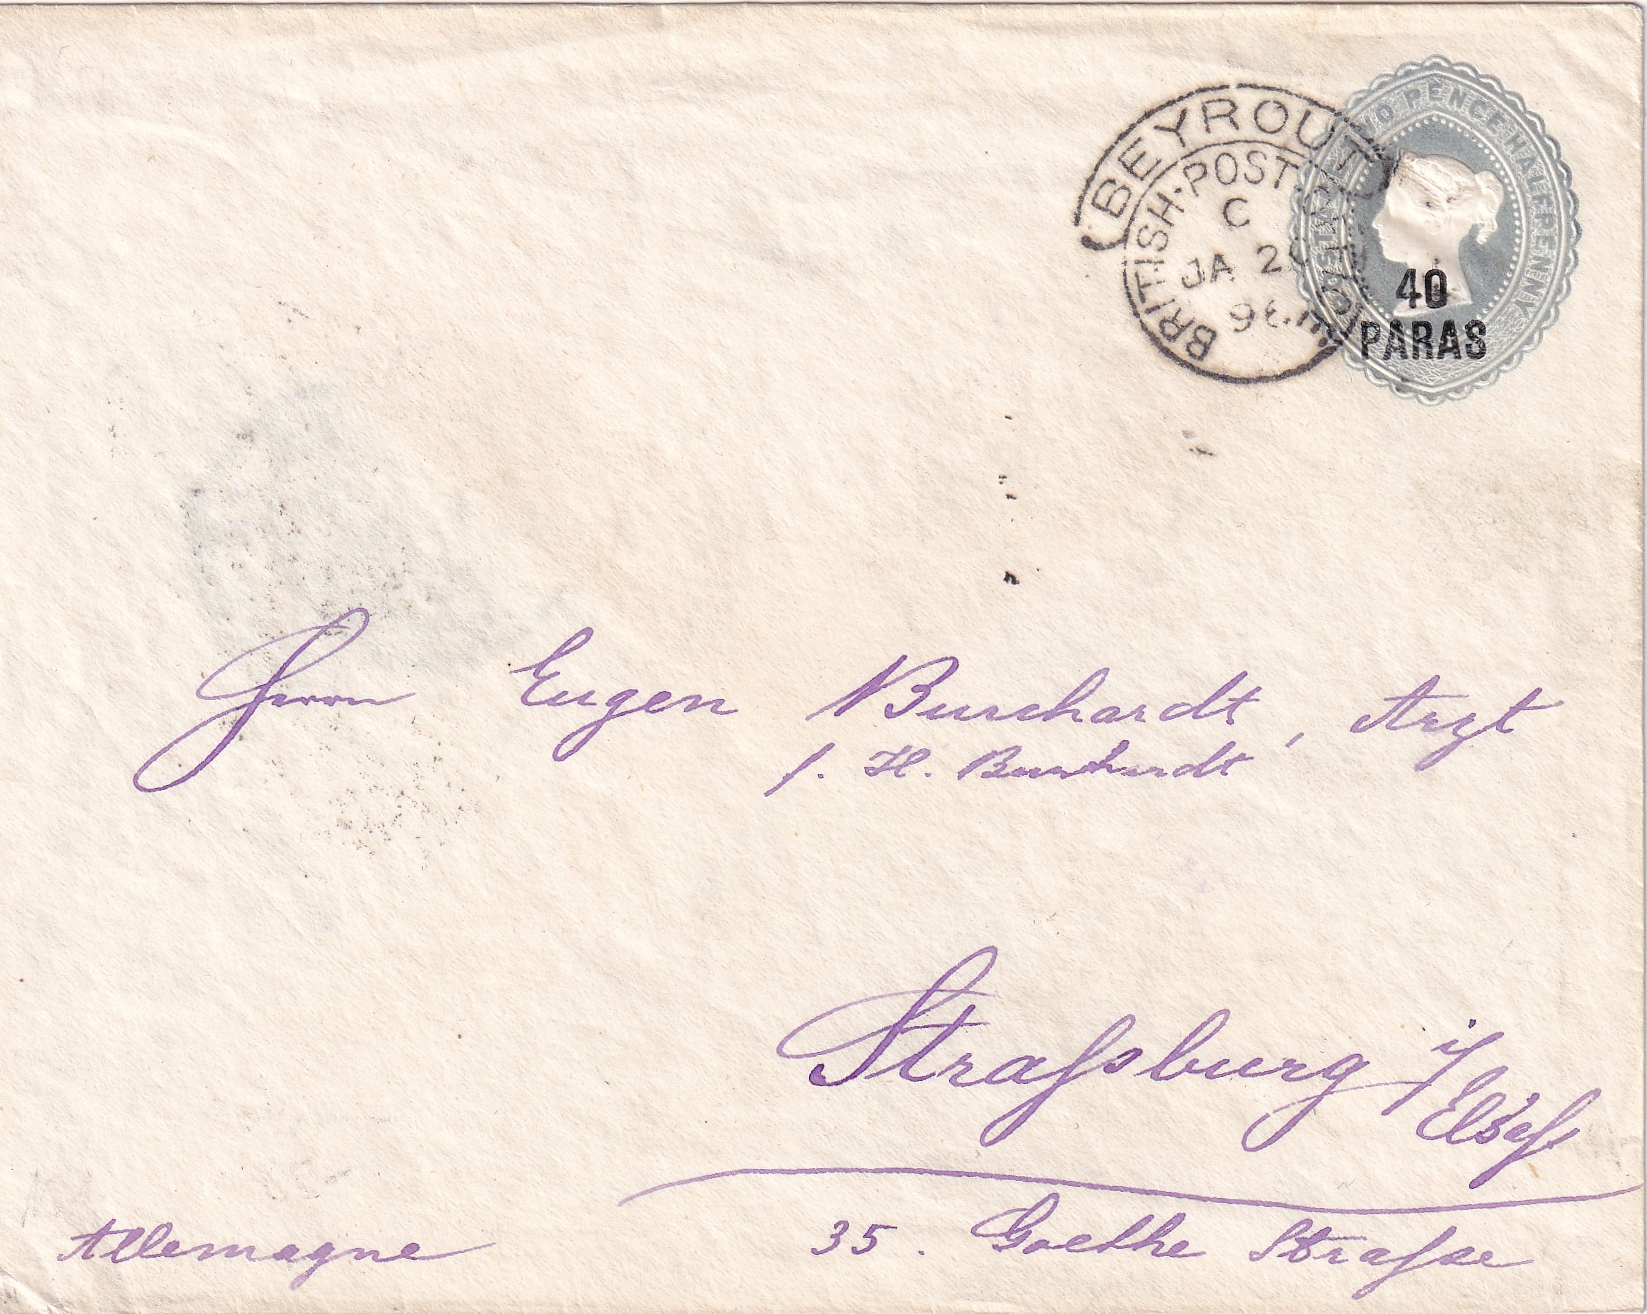 BEYROUT
BRITISH·POST
C
JA 20
96
PENCE HALFPENNY
40
PARAS
Herrn Eugen Burchardt, Arzt
f. H. Burchardt
Straßburg i/
Elsaß
35. Goethe Straße
Allemagne